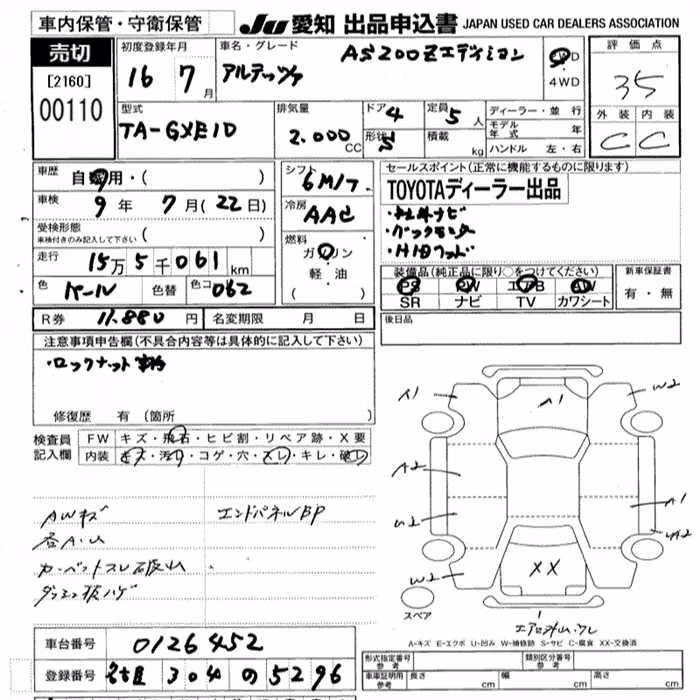 車内保管・守衛保管
JU 愛知 出品申込書 JAPAN USED CAR DEALERS ASSOCIATION
売切
[2160]
00110
初度登録年月
16 7月
車名・グレード
アルテッツァ AS200Zエディション
2WD
4WD
評価点
3.5
外装 内装
C C
型式
TA-GXE10
排気量
2.000CC
ドア 4
形状 S
定員 5人
積載 kg
ディーラー・並行
モデル年式 年
ハンドル 左・右
車歴
自家用・( )
車検
9年 7月(22日)
受検形態
車検付きのみ記入して下さい ( )
走行
15万5千061km
色 パール 色替 色コ 062
シフト
6M/T
冷房
AAC
燃料
ガソリン
軽・油
( )
セールスポイント(正常に機能するものに限ります)
TOYOTAディーラー出品
・社外ナビ
・バックモニター
・HIDフォグ
装備品(純正品に限り○をつけてください)
PS PW エアB AW
SR ナビ TV カワシート
新車保証書
有・無
R券 11.880円 名変期限 月 日
後日品
注意事項申告欄(不具合内容等は具体的に記入して下さい)
・ロックナット
修復歴 有(箇所 )
検査員記入欄
FW キズ・飛石・ヒビ割・リペア跡・X要
内装 キズ・汚れ・コゲ・穴・スレ・キレ・破レ
AWキズ エンドパネルBP
各A・U
カーペットスレ破れ
ダッシュ板ハゲ
A1 A1 W2
A2 A1
U2 UA2
W2 XX
スペア
1
A-キズ E-エクボ U-凹み W-補修跡 S-サビ C-腐食 XX-交換済
車台番号 0126452
登録番号 名古屋 304 の 5296
形式指定番号 参考
類別区分番号 参考
車庫証明用 参考 長さ cm 幅 cm 高さ cm